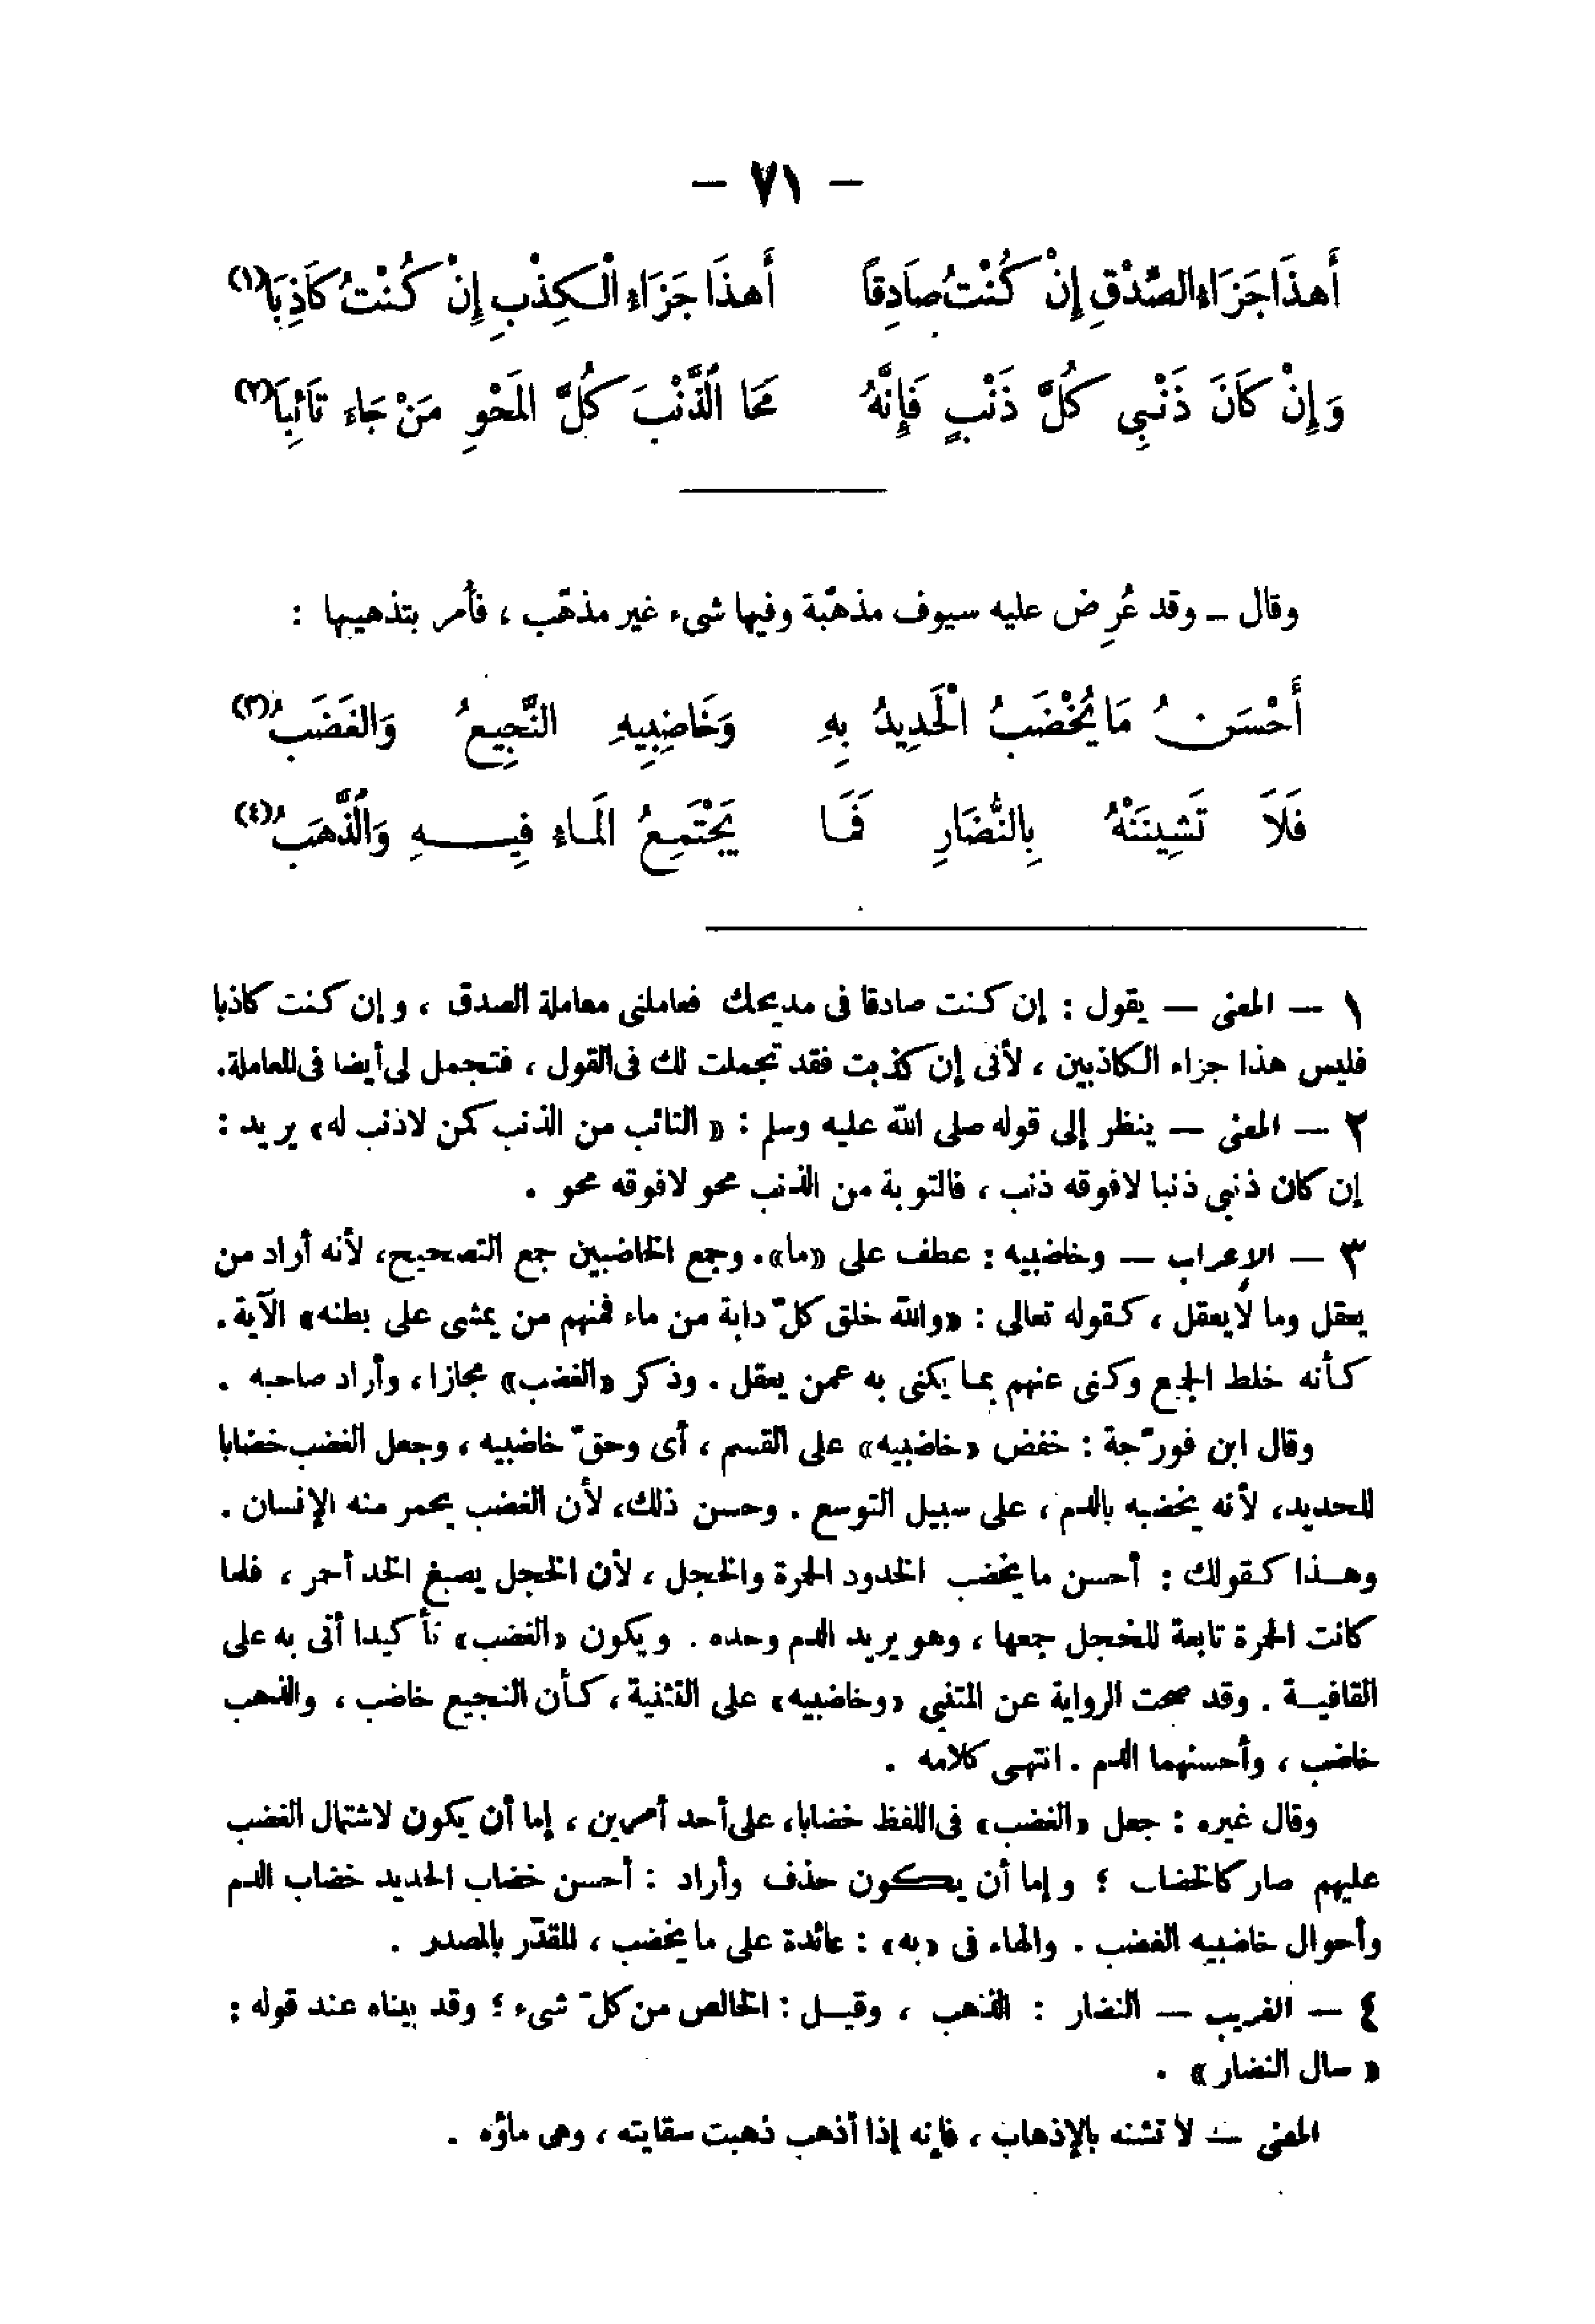 – ٧١ –
أَهذَا جَزَاءُ الصِّدْقِ إِنْ كُنْتُ صَادِقاً أَهذَا جَزَاءُ الْكِذْبِ إِنْ كُنْتُ كَاذِبَا(١)
وَإِنْ كَانَ ذَنْبِى كُلَّ ذَنْبٍ فَإِنَّهُ مَحَا الذَّنْبَ كُلَّ المَحْوِ مَنْ جَاءَ تَائِبَا(٢)
وقال – وقد عُرِض عليه سيوف مذهّبة وفيها شىء غير مذهّب ، فأمر بتذهيبها :
أَحْسَنُ مَا يُخْضَبُ الْحَدِيدُ بِهِ وَخَاضِبِيهِ النَّجِيعُ وَالغَضَبُ(٣)
فَلاَ تَشِينَنْهُ بِالنُّضَارِ فَمَا يَجْتَمِعُ المَاءُ فِيهِ وَالذَّهَبُ(٤)
١ – المعنى – يقول : إن كنت صادقا فى مديحك فعاملنى معاملة الصدق ، وإن كنت كاذبا
فليس هذا جزاء الكاذبين ، لأنى إن كذبت فقد تجملت لك فى القول ، فتجمل لى أيضا فى المعاملة.
٢ – المعنى – ينظر إلى قوله صلى الله عليه وسلم : « التائب من الذنب كمن لاذنب له» يريد :
إن كان ذنبى ذنبا لافوقه ذنب ، فالتوبة من الذنب محو لافوقه محو .
٣ – الإعراب – وخاضبيه : عطف على «ما». وجمع الخاضبين جمع التصحيح، لأنه أراد من
يعقل وما لايعقل ، كقوله تعالى : «والله خلق كلّ دابة من ماء فمنهم من يمشى على بطنه» الآية.
كأنه خلط الجمع وكنى عنهم بما يكنى به عمن يعقل . وذكر «الغضب» مجازا ، وأراد صاحبه .
وقال ابن فورّجة : خفض «خاضبيه» على القسم ، أى وحقّ خاضبيه ، وجعل الغضب خضابا
للحديد، لأنه يخضبه بالدم ، على سبيل التوسع . وحسن ذلك، لأن الغضب يحمر منه الإنسان .
وهذا كقولك : أحسن ما يخضب الخدود الحمرة والخجل ، لأن الخجل يصبغ الخد أحمر ، فلما
كانت الحمرة تابعة للخجل جمعها ، وهو يريد الدم وحده . ويكون «الغضب» تأكيدا أتى به على
القافية . وقد صحت الرواية عن المتنبى «وخاضبيه» على التثنية ، كأن النجيع خاضب ، والذهب
خاضب ، وأحسنهما الدم . انتهى كلامه .
وقال غيره : جعل «الغضب» فى اللفظ خضابا، على أحد أمرين ، إما أن يكون لاشتمال الغضب
عليهم صار كالخضاب ؛ وإما أن يكون حذف وأراد : أحسن خضاب الحديد خضاب الدم
وأحوال خاضبيه الغضب . والهاء فى «به» : عائدة على ما يخضب ، المقدّر بالمصدر .
٤ – الغريب – النضار : الذهب ، وقيل : الخالص من كلّ شىء ؛ وقد بيناه عند قوله :
« سال النضار» .
المعنى – لا تشنه بالإذهاب ، فإنه إذا أذهب ذهبت سقايته ، وهى ماؤه .